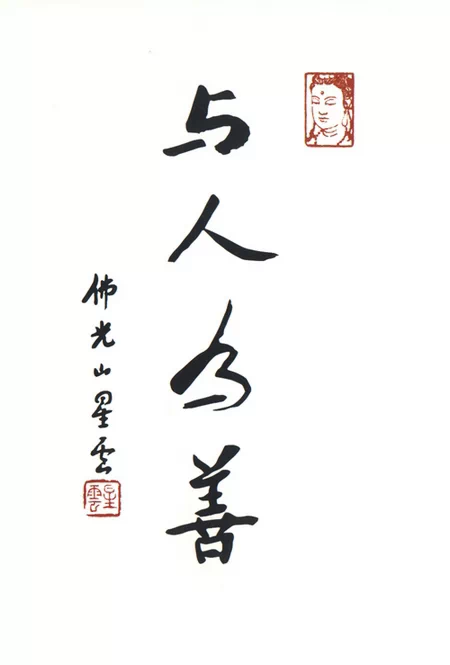 与人为善
佛光山星雲
星雲